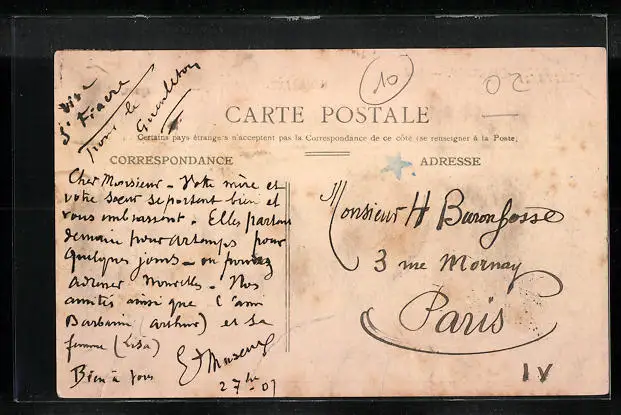 St Fiacre
pour le
10
20
CARTE POSTALE
Certains pays étrangers n'acceptent pas la Correspondance de ce côté (se renseigner à la Poste)
CORRESPONDANCE
ADRESSE
Cher Monsieur - Votre mère et
votre sœur se portent bien et
vous embrassent. Elles partent
demain pour pour
quelques jours - on
adresser Nouvelles - Nos
amitiés ainsi que l'ami
(Arthur) et sa
femme (Lisa)
Bien à vous
27 07
Monsieur H
3 rue Mornay
Paris
IV